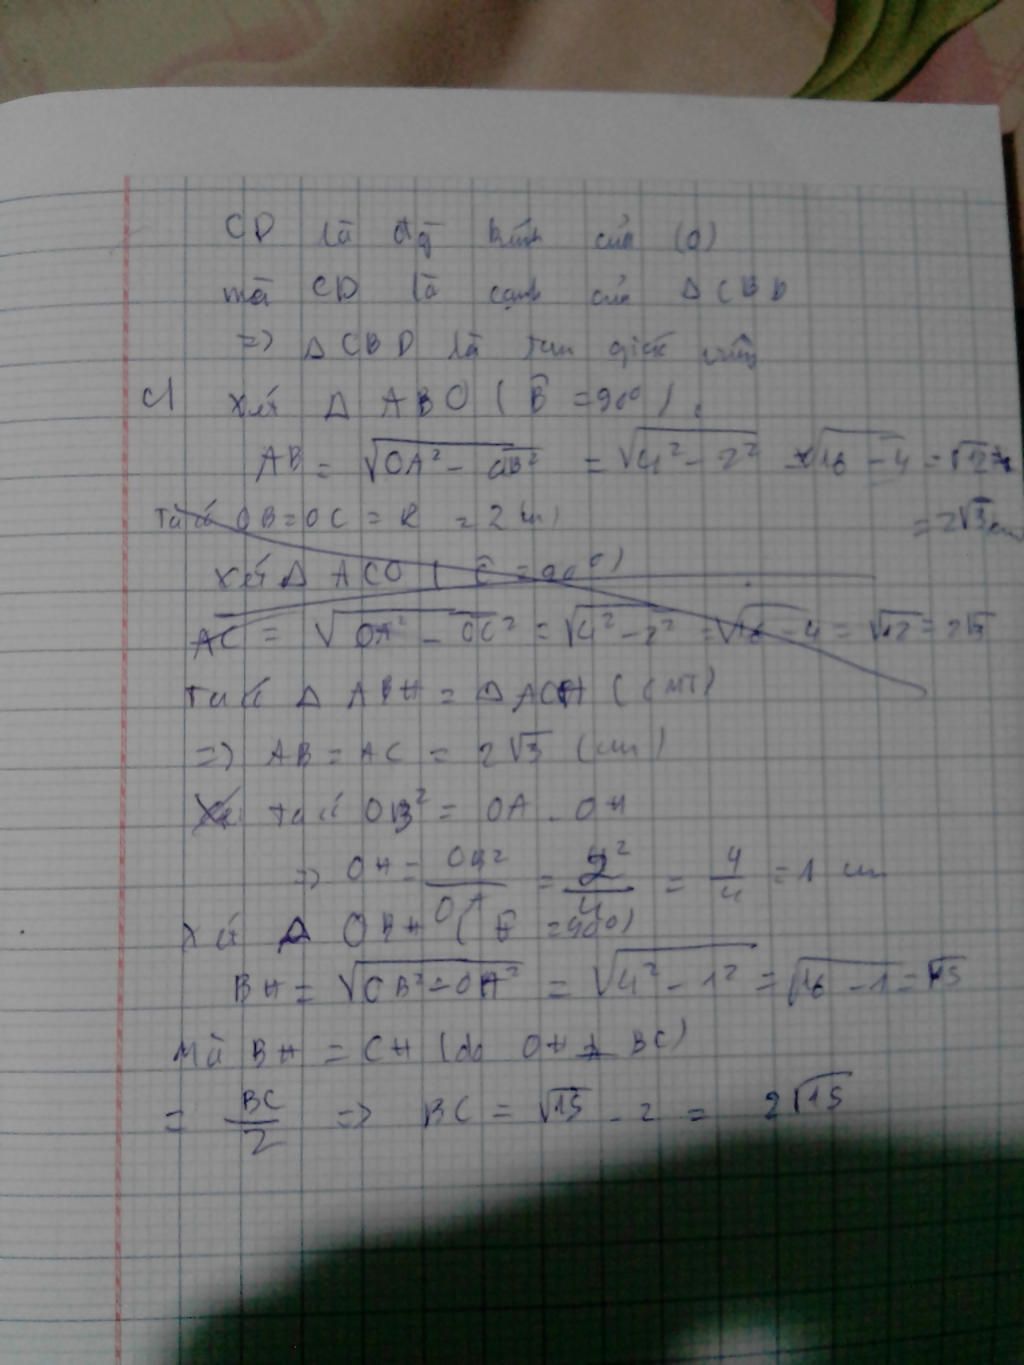 CD là đg kính của (O)
mà CD là cạnh của Δ CBD
=> Δ CBD là tam giác vuông
c) Xét Δ ABO ( B̂ = 90⁰ )
AB = √OA² - OB² = √4² - 2² = √16 - 4 = √12 =
= 2√3 cm
Ta có OB = OC = R = 2 cm
Xét Δ ACO ( Ĉ = 90⁰ )
AC = √OA² - OC² = √4² - 2² = √16 - 4 = √12 = 2√3
Ta có Δ ABH = Δ ACH ( CMT )
=> AB = AC = 2√3 (cm)
ta có OB² = OA . OH
=> OH = OB²/OA = 2²/4 = 4/4 = 1 cm
Xét Δ OBH ( = 90⁰)
BH = √OB² - OH² = √4² - 1² = √16 - 1 = √15
Mà BH = CH (do OH ⊥ BC)
= BC/2 => BC = √15 . 2 = 2√15